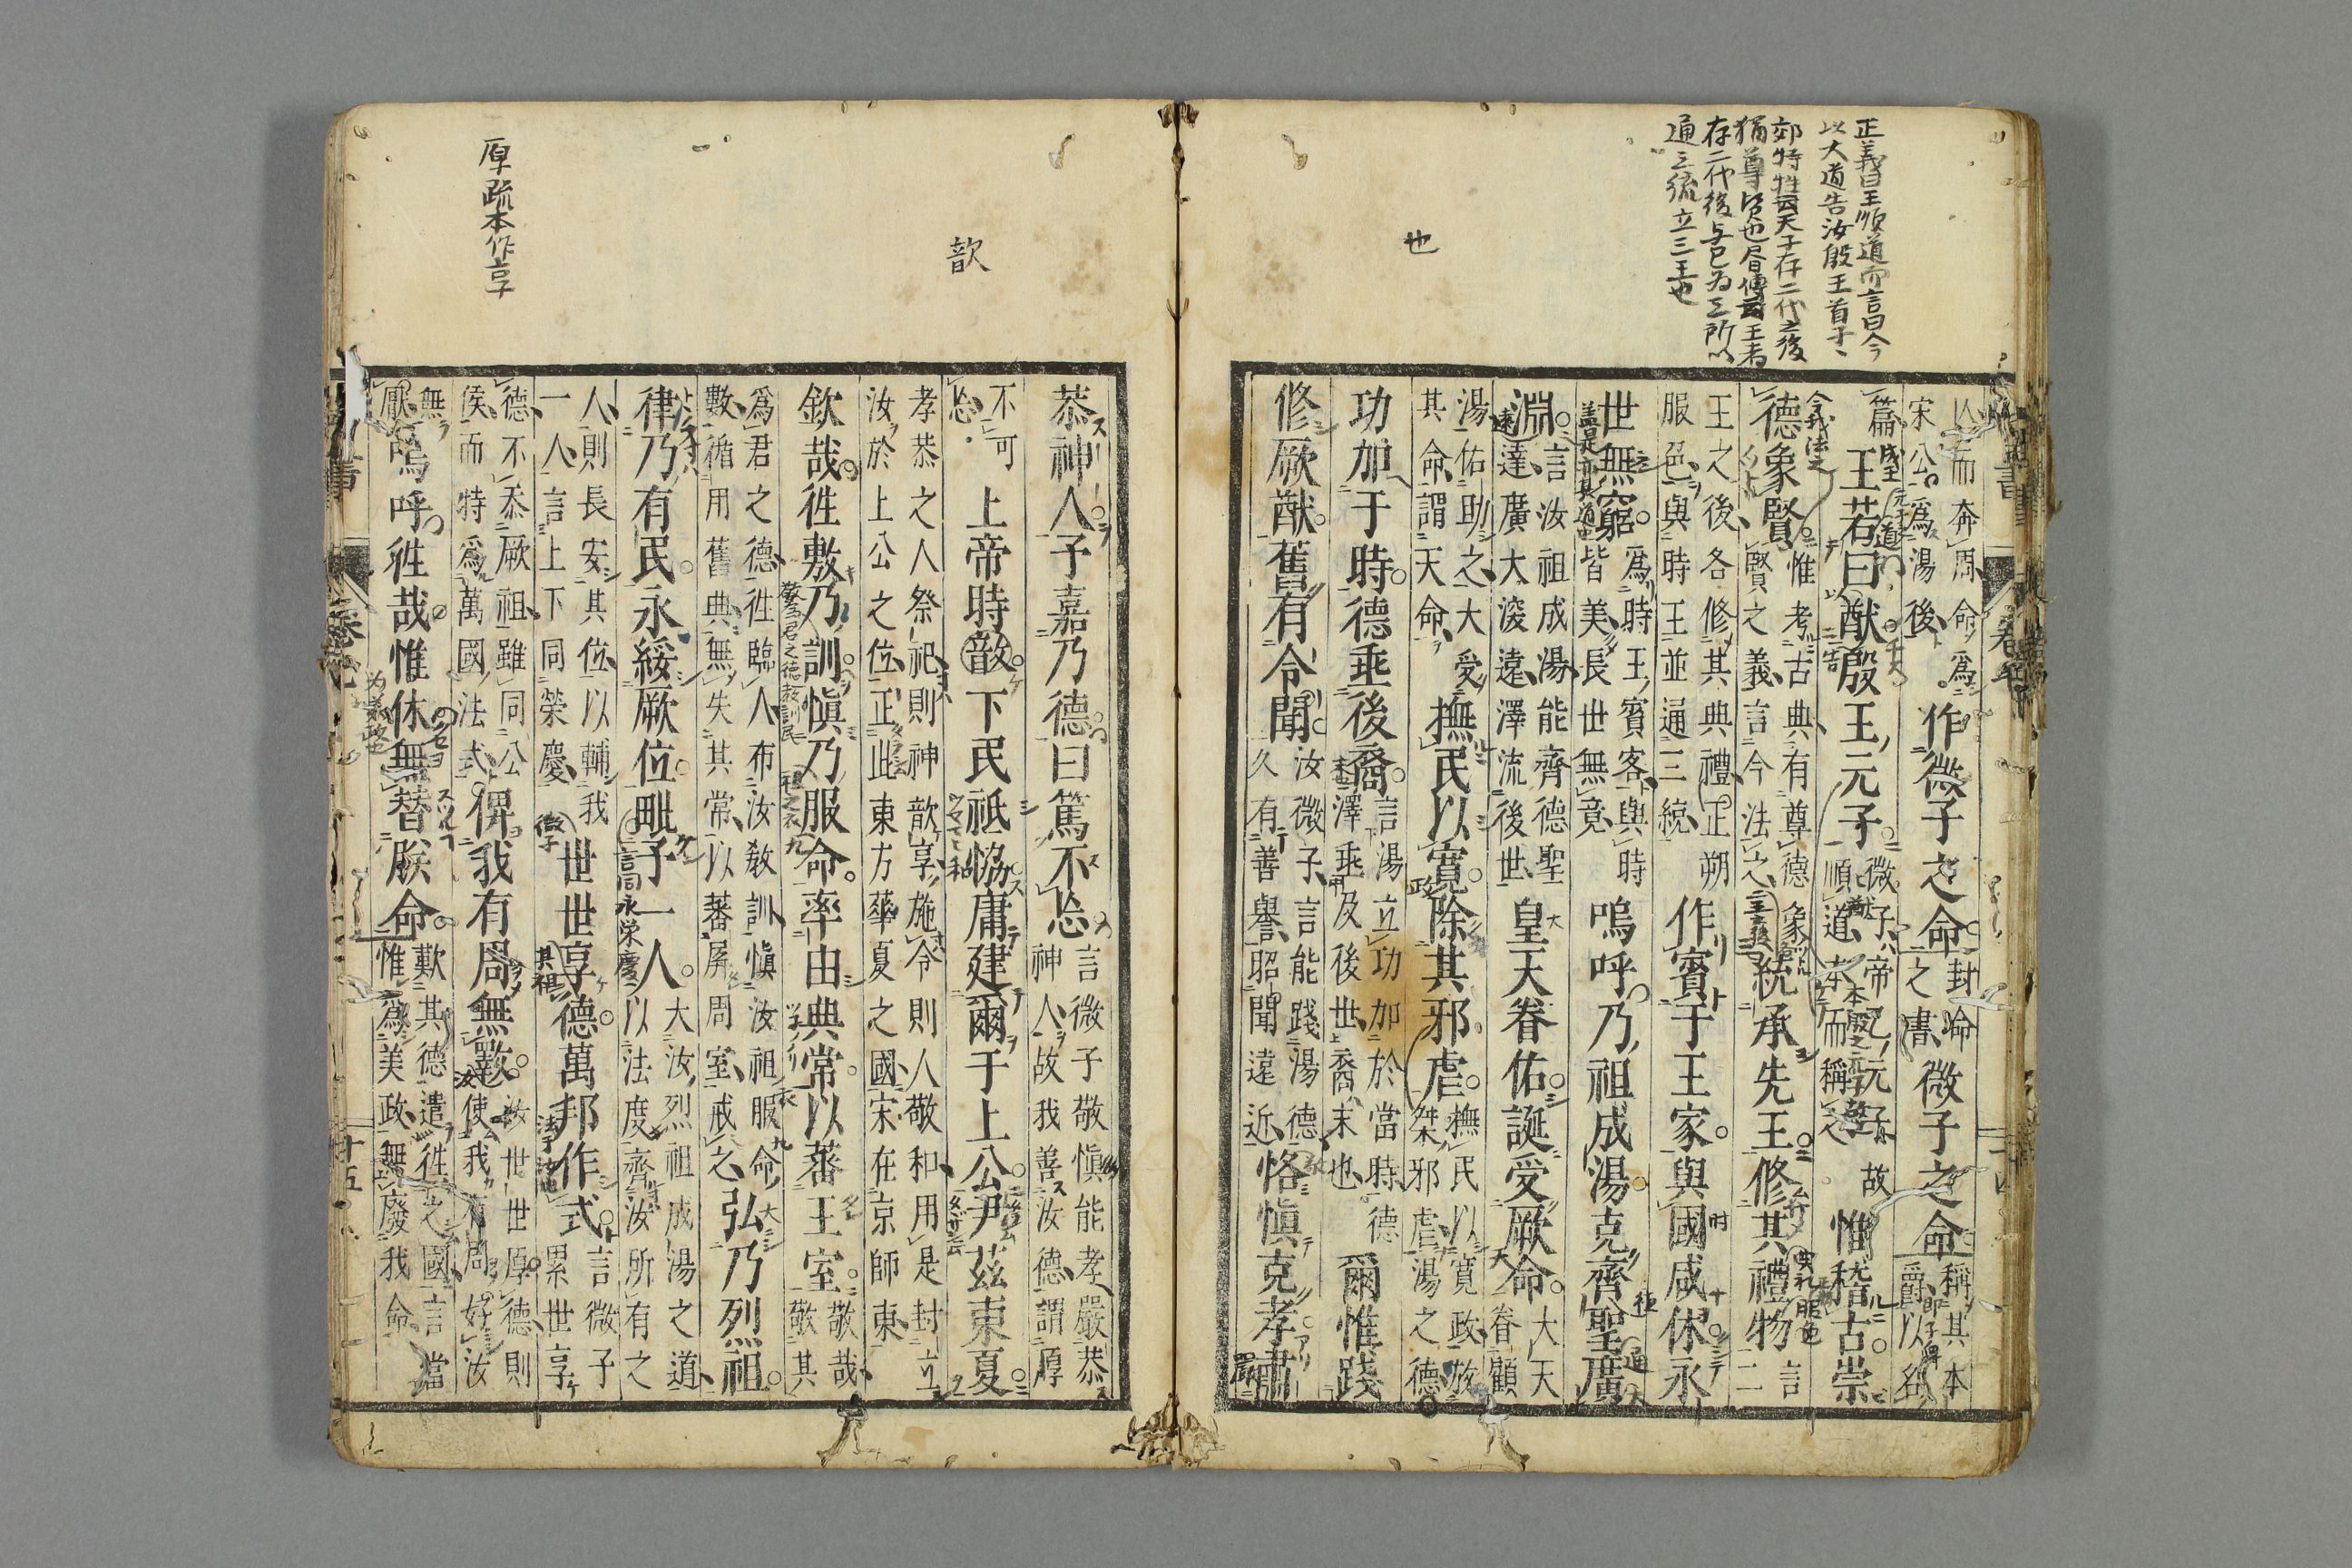 正義曰王順道而言曰今
以大道告汝殷王首子
郊特牲云天子存二代之後
猶尊賢也書傳云王者
存二代後与已為三所以
通三統立三王也
也
以而奔周命爲
宋公爲湯後
作微子之命
封命
之書
微子之命
稱其本
爵以名
篇
王若曰猷殷王元子
微子帝乙元子故
順道本而稱之
惟稽古崇
德象賢
惟考古典有尊德象
賢之義言今法之
統承先王修其禮物
言二
王之後各修其典禮正朔
服色與時王並通三統
作賓于王家與國咸休永
世無窮
爲時王賓客與時
皆美長世無竟
嗚呼乃祖成湯克齊聖廣
淵
言汝祖成湯能齊德聖
達廣大深遠澤流後世
皇天眷佑誕受厥命
大天
眷顧
湯佑助之大受
其命謂天命
撫民以寬除其邪虐
撫民以寬政放
桀邪虐湯之德
功加于時德垂後裔
言湯立功加於當時德
澤垂及後世裔末也
爾惟踐
修厥猷舊有令聞
汝微子言能踐湯德
久有善譽昭聞遠近
恪愼克孝肅
歆
厚疏本作享
恭神人予嘉乃德曰篤不忘
言微子敬愼能孝嚴恭
神人故我善汝德謂厚
不可
忘
上帝時歆下民祗協庸建爾于上公尹茲東夏
孝恭之人祭祀則神歆享施令則人敬和用是封立
汝於上公之位正此東方華夏之國宋在京師東
欽哉往敷乃訓愼乃服命率由典常以蕃王室
敬哉
敬其
爲君之德往臨人布汝敎訓愼汝祖服命
數循用舊典無失其常以蕃屏周室戒之
弘乃烈祖
律乃有民永綏厥位毗予一人
大汝烈祖成湯之道
以法度齊汝所有之
人則長安其位以輔我
一人言上下同榮慶
世世享德萬邦作式
言微子
累世享
德不忝厥祖雖同公
侯而特爲萬國法式
俾我有周無斁
汝世世厚德則
使我有周好汝
無
厭
嗚呼往哉惟休無替朕命
歎其德遣往之國言當
惟爲美政無廢我命